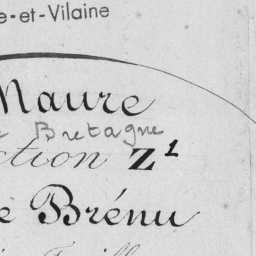 e-et-Vilaine
Maure
Bretagne
ction Z1
e Brénu